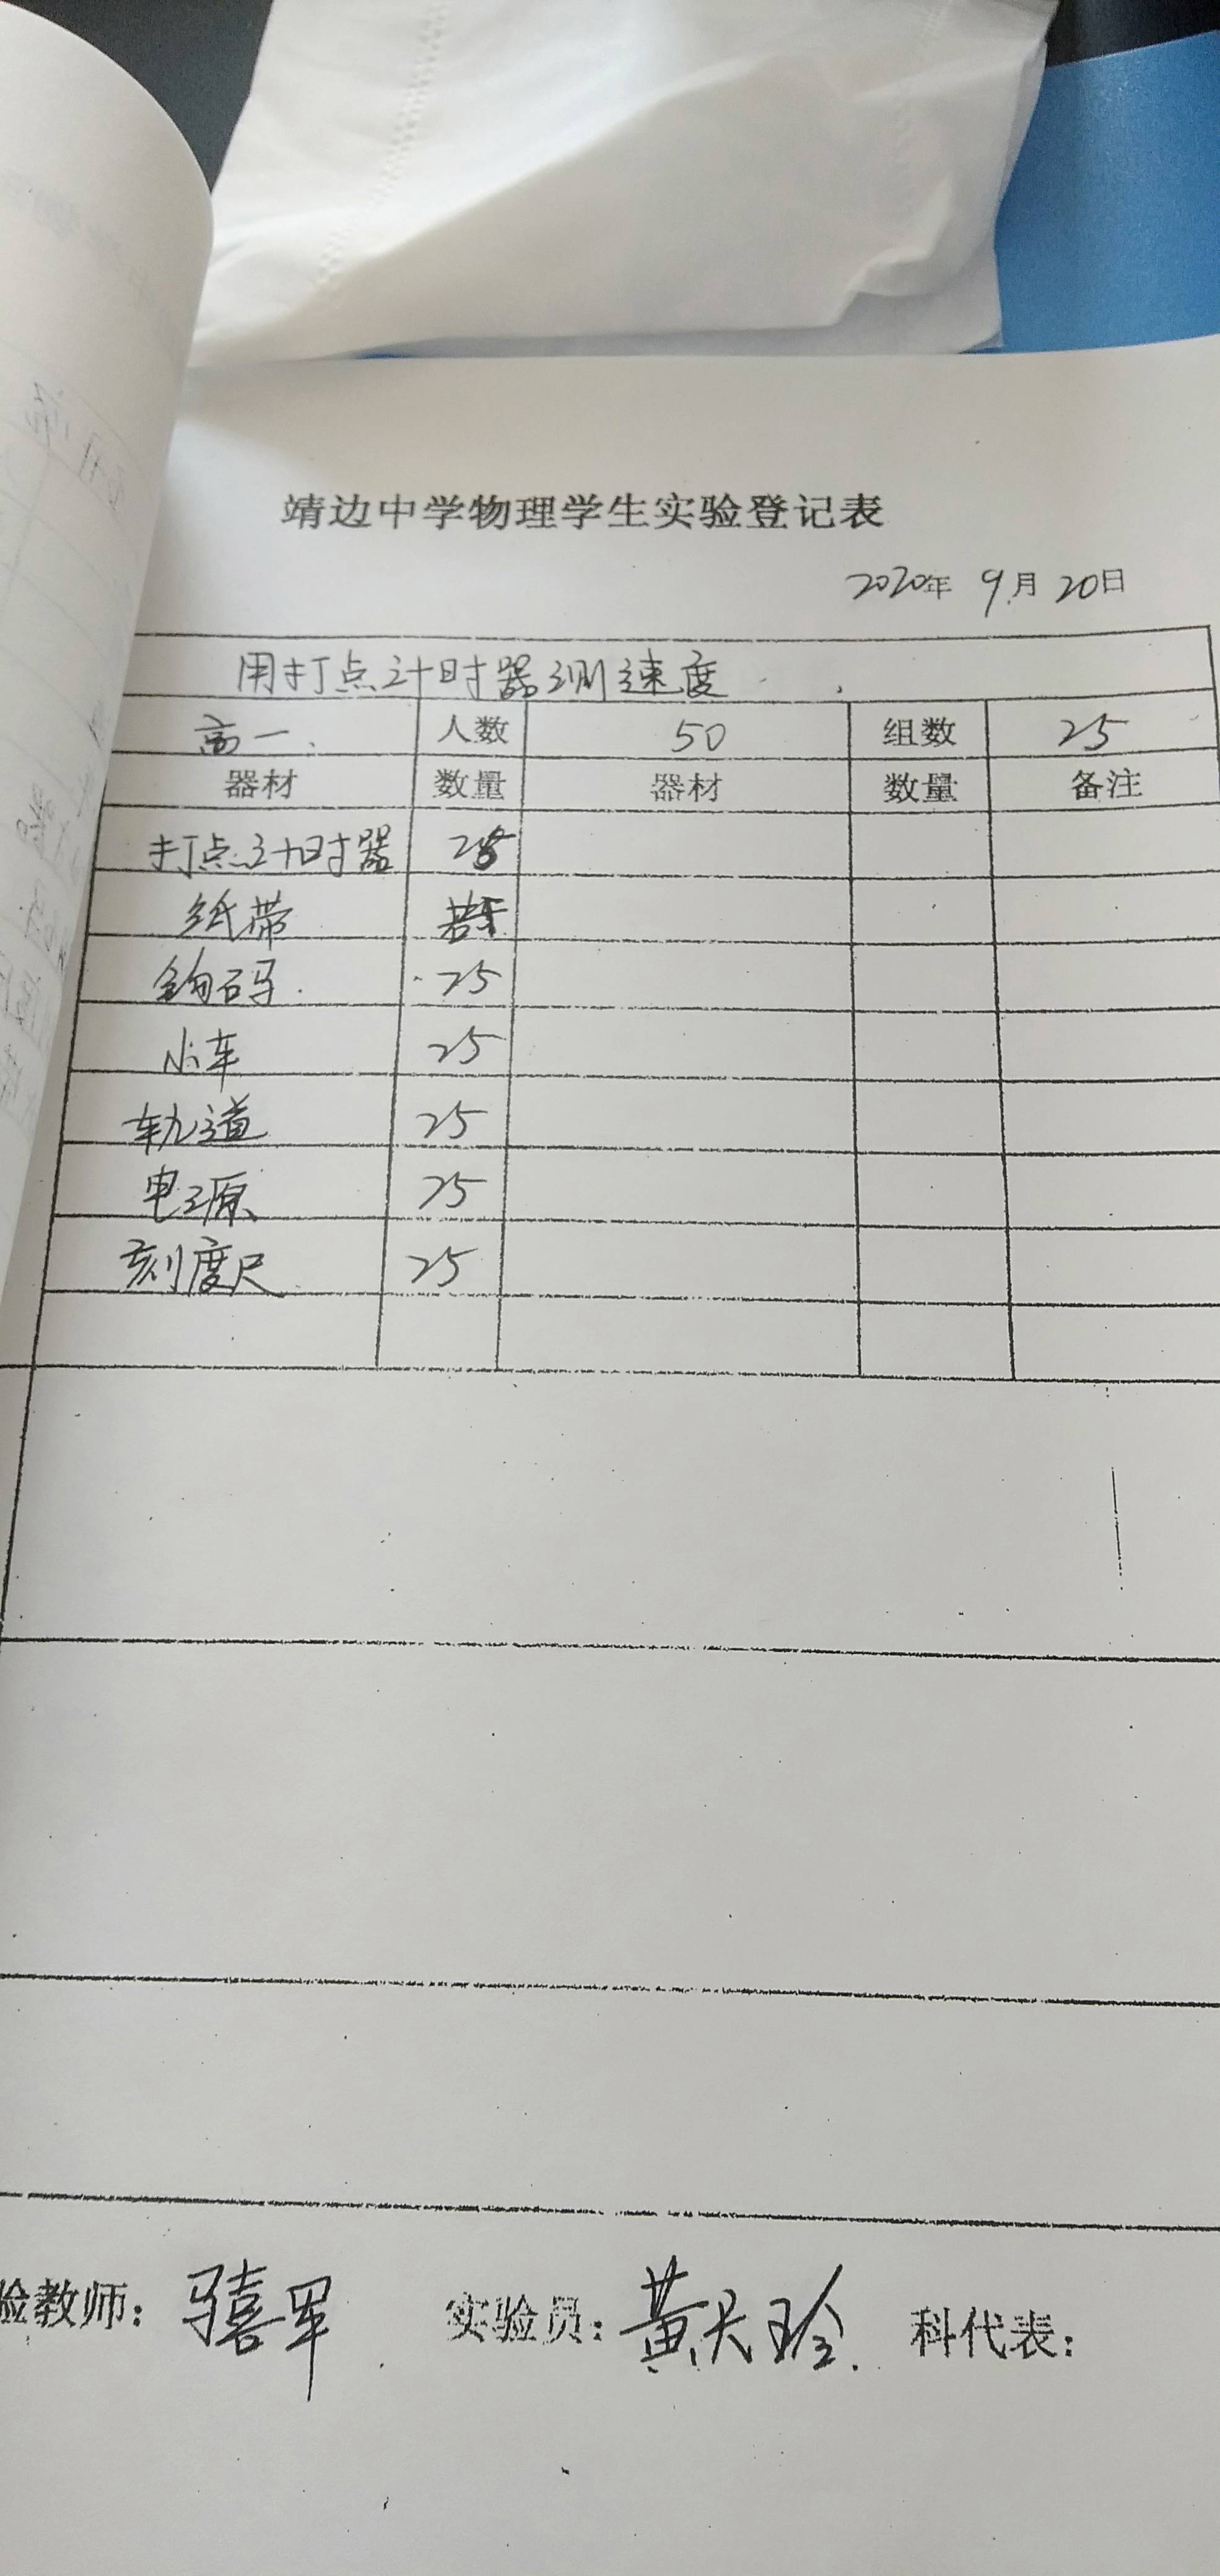 靖边中学物理学生实验登记表
2020年 9月 20日
用打点计时器测速度
高一 人数 50 组数 25
器材 数量 器材 数量 备注
打点计时器 25
纸带 若干
钩码 25
小车 25
轨道 25
电源 25
刻度尺 25
验教师: 马喜军 实验员: 黄天玲 科代表: